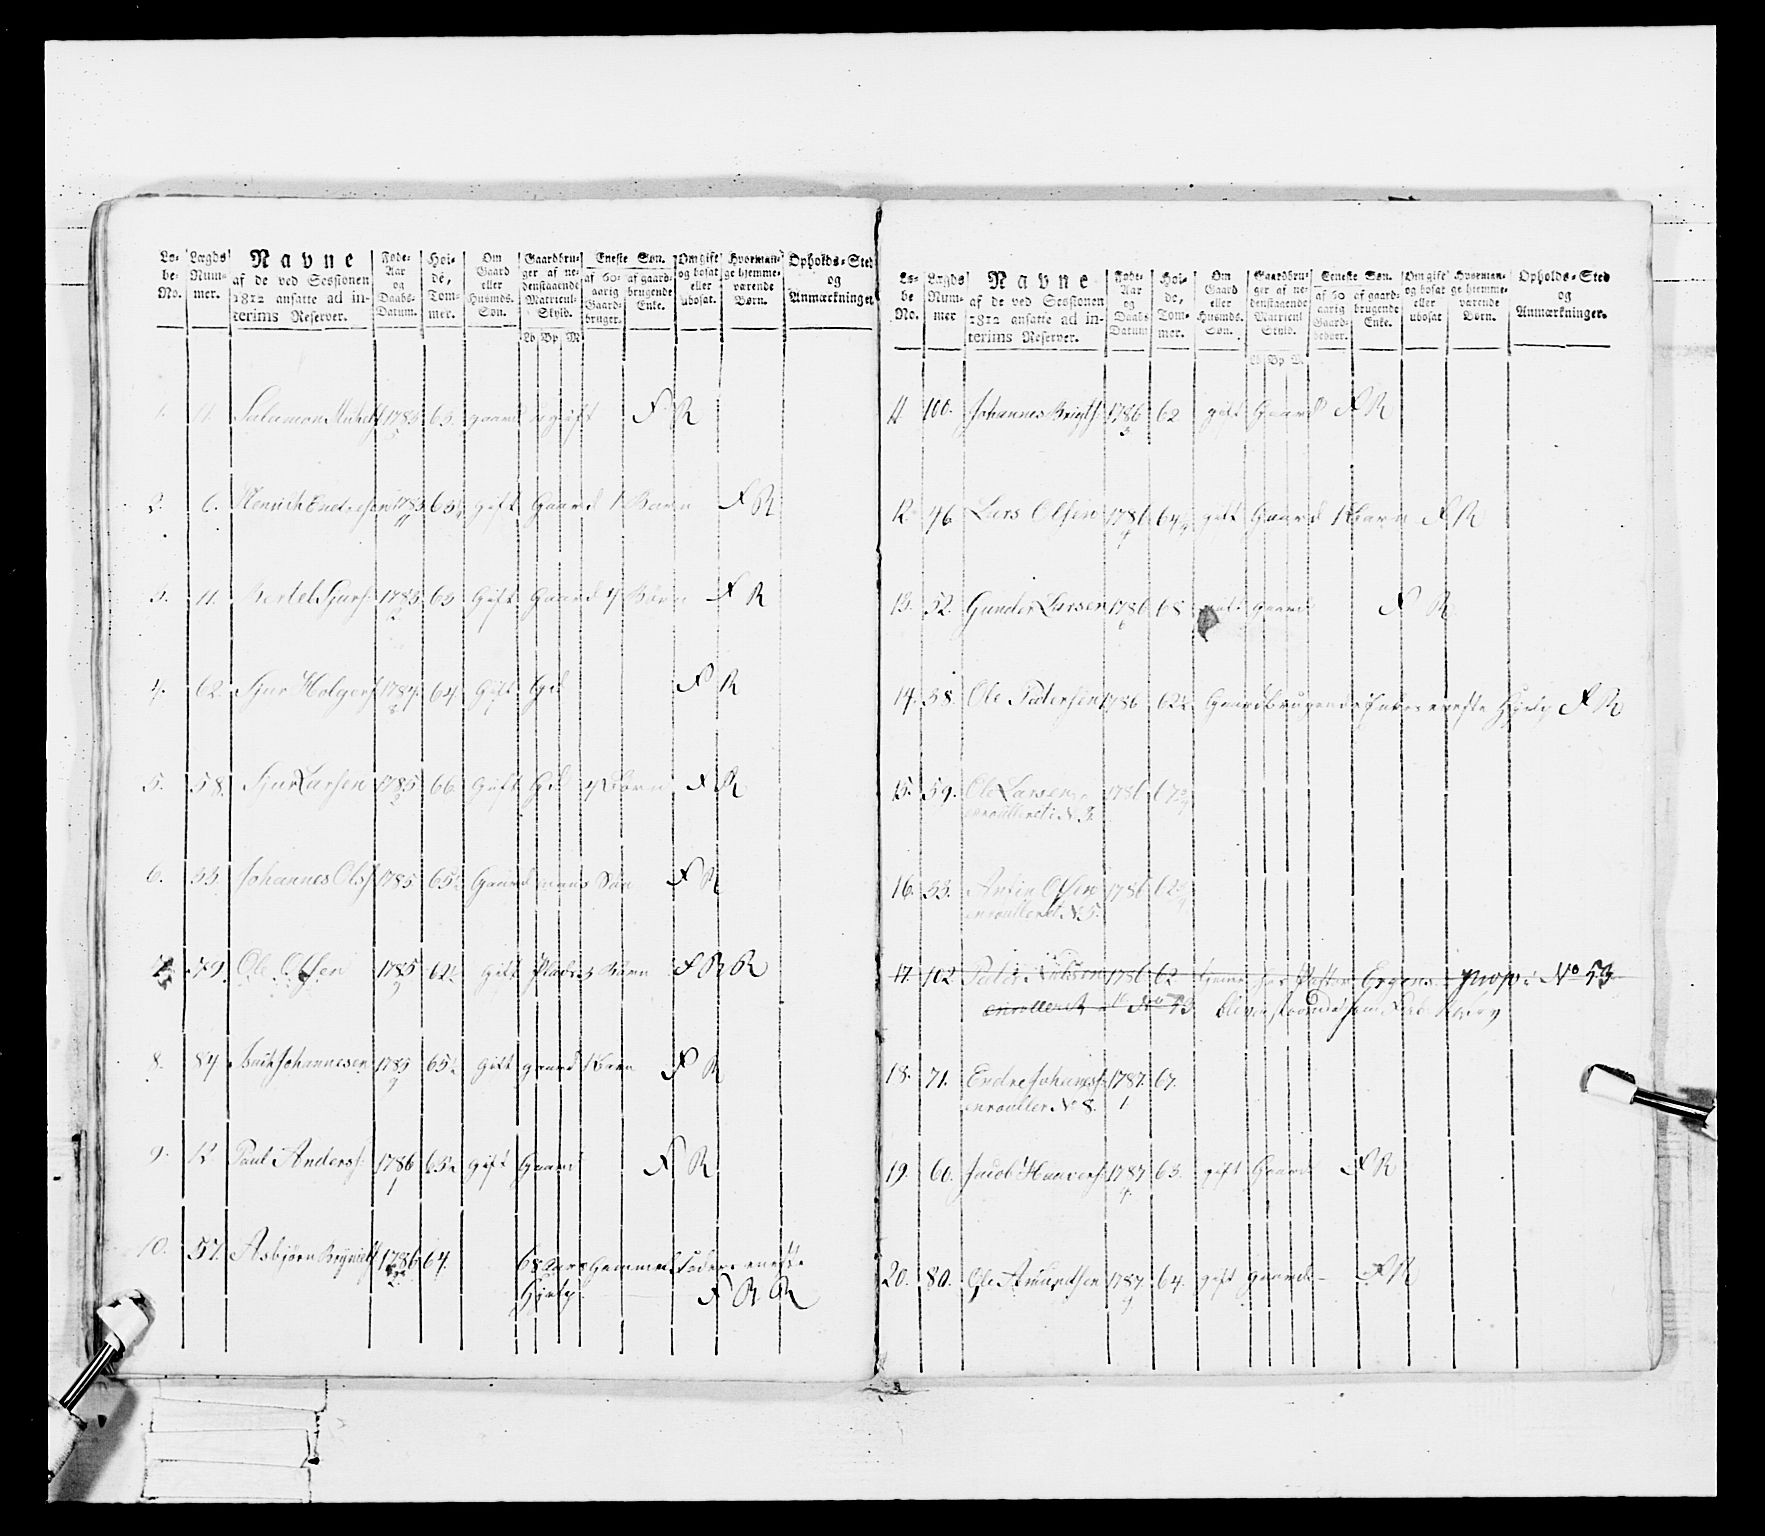 Lo-be-No. Lægds Num-mer. Navne af de ved Sessionen 1812 ansatte ad in-terims Reserver. Føde-Aar og Daabs-Datum. Høi-de, Tom-mer. Om Gaard eller Husmds. Søn. Gaardbru-ger af ne-denstaaende Matricul-Skyld. Eneste Søn. af 60-aarig Gaard-bruger. af gaard-brugende Enke. Om gift og bosat eller ubosat. Hvorman-ge hjemme-værende Børn. Opholds-Sted og Anmærkninger
Lb Bp M
1. 11. Salamon 1783 63. gaard ugift F R
2. 6. Henrich Endresen 1783 63 gift Gaard 1 Barn F R
3. 11. Bertel Sjurs. 1783 63 Gift Gaard 4 Børn F R
4. 62. Sjur Holgers. 1784. 64. Gift Gd F R
5. 58. Sjur Larsen 1785 66. Gift Gd 4 Børn F R
6. 53. Johannes Ols. 1785 65½ Gaardmans Søn F R
79. Ole Olsen 1785 62½ Gift Plads 3 Børn F R R
8. 84 Johannesen 1785 65½ gift gaard 1 Barn F R
9. Paul Anders. 1786 63½ gift Gaard F R
1
10. 57. Asbjørn 1786 64. 68 Aars Gammel Faders eneste
Hjelp. F R R
Lo-be No. Lægds Num-mer Navne af de ved Sessionen 1812 ansatte ad in-terims Reserver. Føde-Aar og Daabs Datum Høi-de, Tom-mer. Om Gaard eller Husmds. Søn. Gaardbru-ger af ne-denstaaende Matricul Skyld. Eneste Søn. af 60 aarig Gaard-bruger. af gaard-brugende Enke. Om gift og bosat eller ubosat Hvorman-ge hjemme-værende Børn. Opholds-Sted og Anmærkninger.
11 100. Johannes 1786 62 gift Gaard F R
12 46 Lars Olsen 1786 64 gift Gaard 1 Barn F R
13. 52. Gunder Larsen 1786 68 gift gaard F R
14. 58. Ole Pedersen 1786 62½ Gaardbrugende Enkes eneste Hjelp F R
15. 59. Ole Larsen. 1786 67
enroulleret: No 3.
16. 53. Olsen 1786 62
enroulleret No 5.
17. 102. Peder 1786 62 No 53
enrolleret No 53
18. 71. Endre Johans. 1787. 67.
enrouller No 8. 1.
19. 60. Jacob 1787 63. gift Gaard F R
20. 80. Ole Amundsen 1787. 64. gift gaard – F R